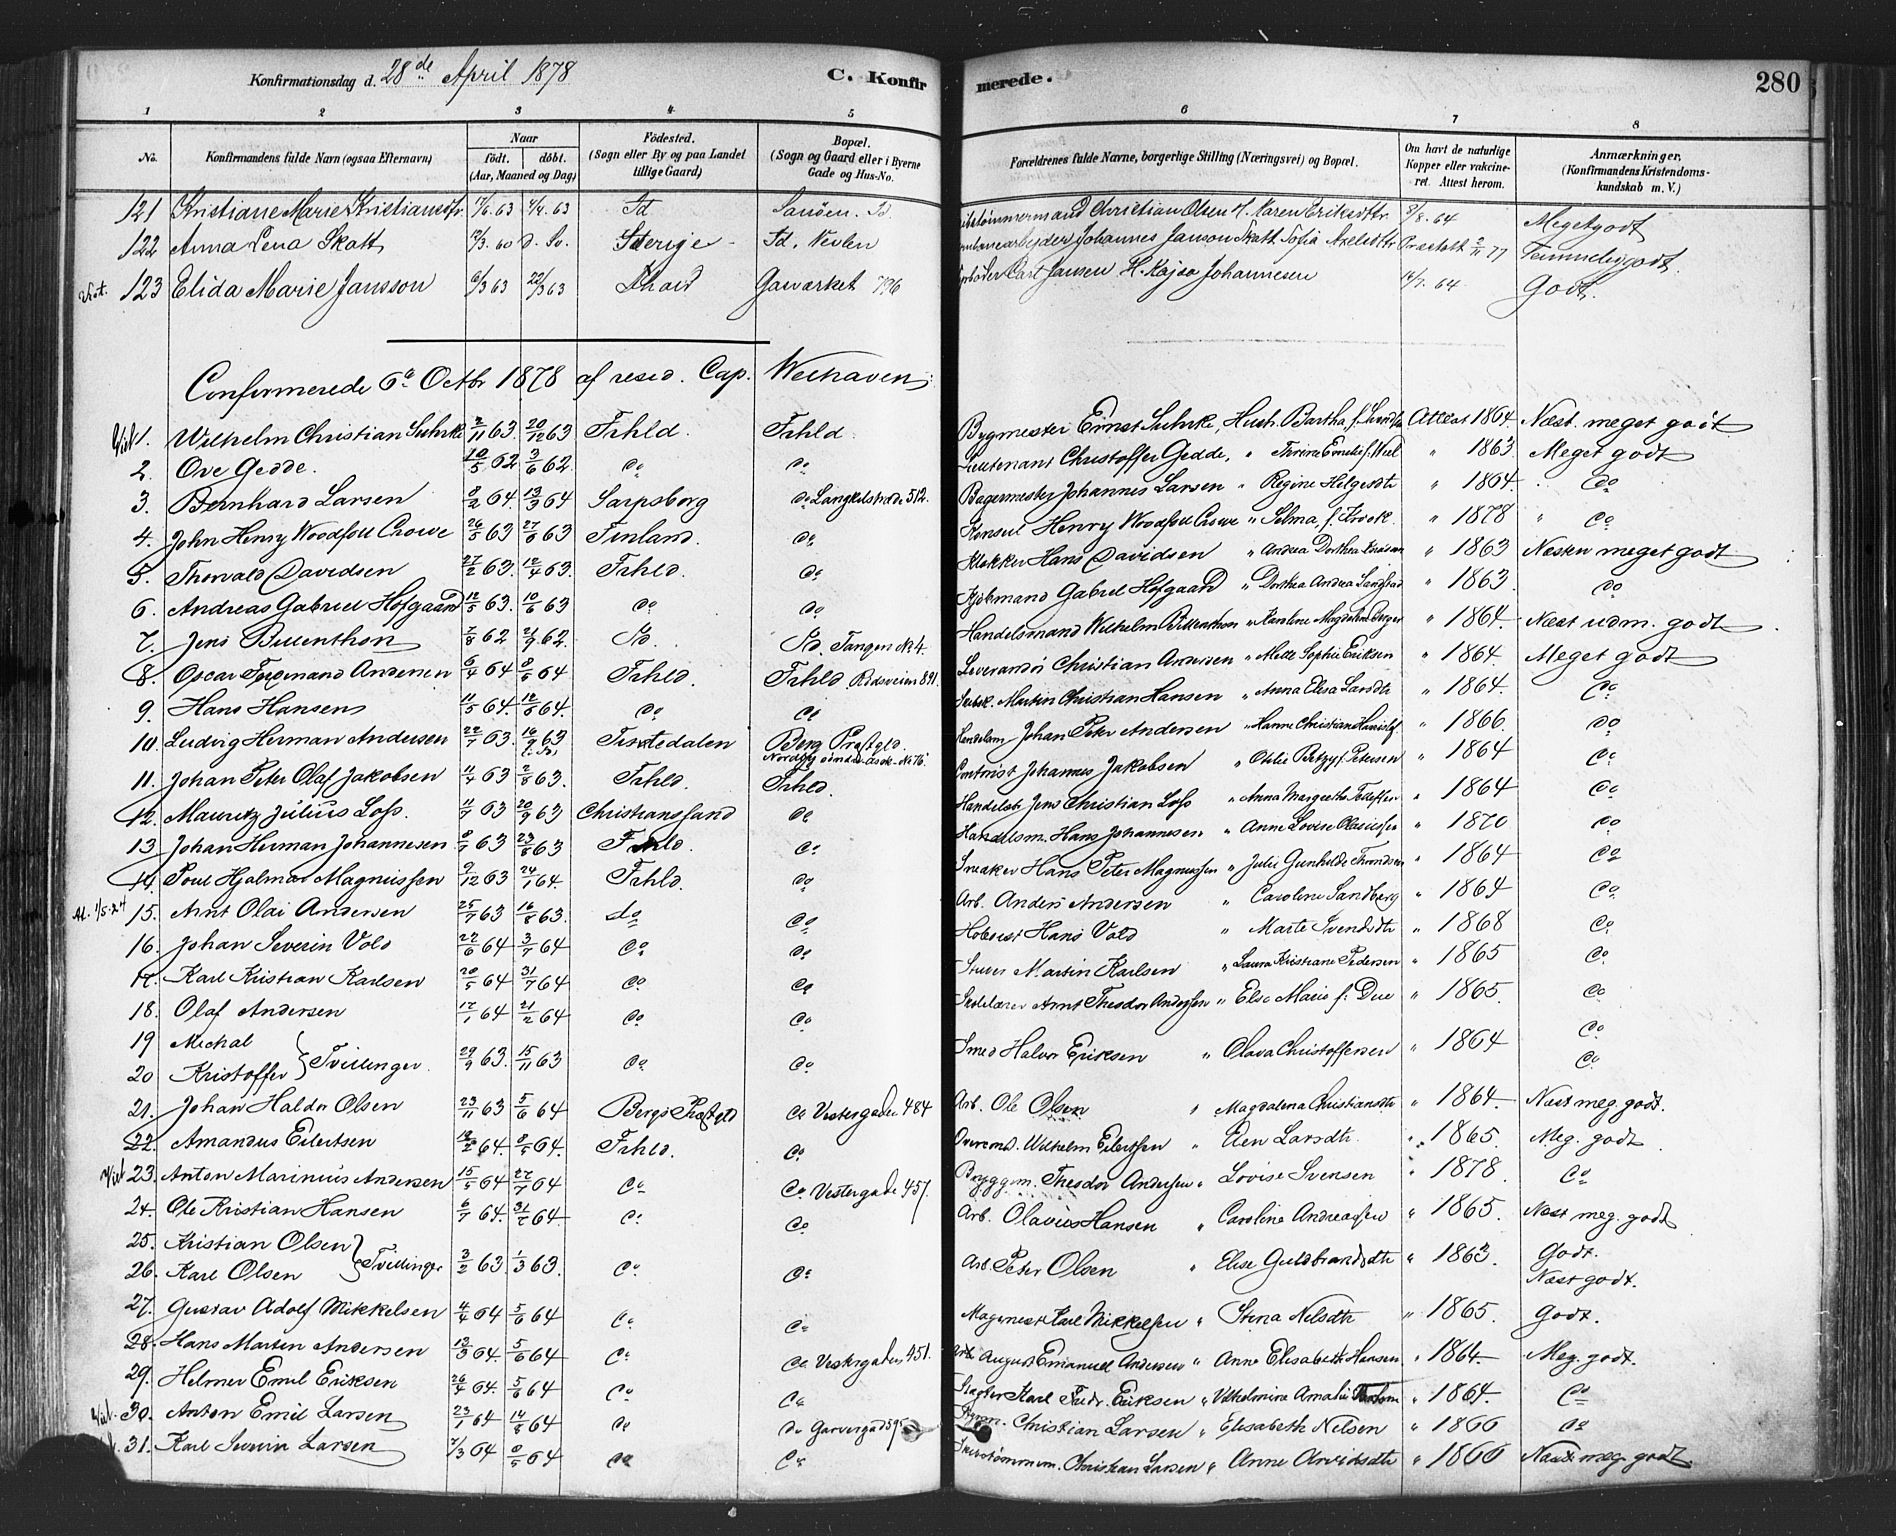 Konfirmationsdag d. 28de April 1878 C. Konfirmerede. 280
1 2 3 4 5 6 7 8
No. Konfirmandens fulde Navn (ogsaa Efternavn) Naar født. døbt. (Aar, Maaned og Dag) Fødested. (Sogn eller By og paa Landet tillige Gaard) Bopæl. (Sogn og Gaard eller i Byerne Gade og Hus-No. Forældrenes fulde Navne, borgerlige Stilling (Næringsvei) og Bopæl. Om havt de naturlige Kopper eller vakcineret. Attest herom. Anmærkninger. (Konfirmandens Kristendomskundskab m. V.)
121 Kristiane Marie Kristiansdtr. 63 63 Id Sauøen. Id. Christian Olsen H. Karen Eriksdttr 8/8. 64 Meget godt
122 Anna Lena Skatt 60 d. Sv. Sverige Id. Veden Johannes Janson Skatt Sofia Axelsdttr 77 Temmelig godt.
123 Elida Marie Jansson 6/3 63 22/3 63 Gasværket 796 Carl Jansen H. Kajsa Johannesen 64 Godt.
Confirmerede 6te Octbr 1878 af resid. Cap. Welhaven:
1. Wilhelm Christian Suhrke 2/11 63 20/12 63 Frhld. Frhld. Bygmester Ernst Suhrke, Hust. Bartha f. Attest 1864. Næst. meget godt
2. Ove Gedde. 10/5 62 3/6 62. do do Lieutenant Christoffer Gedde, " Thrine Emelie f. Wiel " 1863. Meget godt
3. Bernhard Larsen 8/2 64 13/3 64 Sarpsborg do Langelstræde 512. Bagermester Johannes Larsen " Regine Helgesdtr " 1864. " do
4. John Henry Woodfall Crowe 26/5 63 27/6 63 Finland. do Konsul Henry Woodfall Crowe " Selma, f. Krook. " 1878 " do
5. Thorvald Davidsen 27/2 63. 12/4 63. Frhld. do Klokker Hans Davidsen " Andrea Dorthea " 1863 Næsten meget godt
6. Andreas Gabriel Hofgaard 12/5 63. 10/6 63 do do Kjøbmand Gabriel Hofgaard " Dorthea Andrea " 1863. do
7. Jens Billenthon 7/8 62 21/9 62. Id. Id. Tangen No 4. Handelsmand Wilhelm Billenthon " Karoline Magdalena Berger " 1864. Næst udm. godt
8. Oscar Ferdinand Andersen 6/4 64 8/5 64 Frhld. Frhld. 891. Leverandør Christian Andersen " Mette Sophie Eriksen " 1864. Meget godt
9. Hans Hansen 11/5 64. 12/6 64. do do Martin Christian Hansen " Anna Elisa Larsdtr " 1864. do
10. Ludvig Herman Andersen 22/7 63. 16/9 63 Tistedalen Berg Præstgld. Handelsm. Johan Peter Andersen " Hanne Christian " 1866. do
11. Johan Peter Olaf Jakobsen 11/4 63 2/8 63. Frhld. Frhld. Johannes Jakobsen " Othilie Betzy f. Petersen " 1864 do
12. Mauritz Julius Loss. 11/7 63 20/9 63 Christianssand do Handelsb. Jens Christian Loss " Anna Margrethe " 1864 do
13. Johan Herman Johannesen 8/7 63 23/8 63 Frhld. do Handelsm. Hans Johannesen " Anne Lovise " 1870 do
14. Poul Hjalmar Magnussen 9/12 63 24/1 64. Frhld. do Snedker Hans Peter Magnussen " Julie Gunhilde " 1864 do
Al. 1/5.24 15. Arnt Olai Andersen 25/7 63 16/8 63. do do Arb. Anders Andersen " Caroline Sandberg " 1864 do
16. Johan Severin Vold 22/6 64 3/7 64 do do Hans Vold " Marte Svendsdtr " 1868 do
17. Karl Kristian Karlsen 20/5 64 31/7 64 do do Stuver Martin Karlsen " Laura Kristiane Pedersen " 1865 do
18. Olaf Andersen 12/1 64 21/2 64 do do Arnt Theodor Andersen " Else Marie f. Due " 1865. do
19 Michal do
} Tvillinger. 29/9 63. 15/11 63 do do Smed Halvor Eriksen " Olava Christoffersen " 1864
20 Kristoffer do
21. Johan Haldor Olsen 23/11 63 5/6 64 Bergs Præstgld do Vestergaden 484 Arb. Ole Olsen " Magdalena Christiansdtr " 1864. Næst meg. godt.
22. Amandus Eilertsen 64. 8/5 64. Frhld. do Wilhelm Eilertsen " Elen Larsdtr. " 1865. Meg. godt
23. Anton Marinius Andersen 15/5 64 27/7 64 do do Vestergade 457. Bryggem. Theodor Andersen " Lovise Svensen " 1878. do
24. Ole Kristian Hansen 6/7 64. 31/7 64 do do Arb. Olavius Hansen " Caroline Andreassen " 1865. Næst meg. godt
25. Kristian Olsen Godt.
} Tvillinger 3/2 63. 1/3 63. do do Arb. Peter Olsen " Elise Guldbrandsdtr " 1863.
26. Karl Olsen Næst godt.
27. Gustav Adolf Mikkelsen 4/4 64 5/6 64 do do Karl Mikkelsen " Stina Nilsdtr " 1865. Godt.
28. Hans Martin Andersen 13/3 64. 5/6 64 do do Vestergaden 451. Arb. August Emanuel Andersen " Anne Elisabeth Hansen " 1864. Meg. godt.
29. Helmer Emil Eriksen 26/4 64. 5/6 64 do do Slagter Karl Fredr. Eriksen " Vilhelmine Amalie " 1864. do
30. Anton Emil Larsen 23/1 64 14/8 64 do do Garvergad 595 Christian Larsen " Elisabeth Nilsen " 1866 do
31. Karl Severin Larsen 7/3 64 8/5 64 do do Christian Larsen " Anne Arvidsdtr " 1866 Næst meg. godt